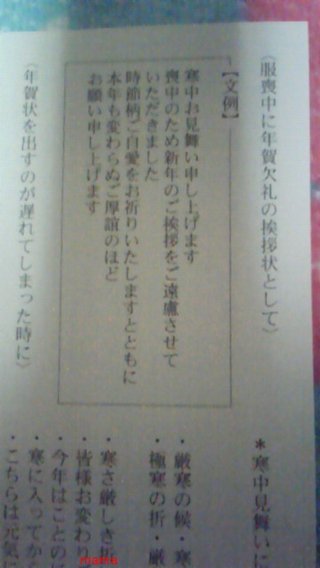 〈服喪中に年賀欠礼の挨拶状として〉
【文例】
寒中お見舞い申し上げます
喪中のため新年のご挨拶をご遠慮させて
いただきました
時節柄ご自愛をお祈りいたしますとともに
本年も変わらぬご厚誼のほど
お願い申し上げます
〈年賀状を出すのが遅れてしまった時に〉
*寒中見舞いに
・厳寒の候・寒
・極寒の折・厳
・寒さ厳しき折
・皆様お変わり
・今年はことのほ
・寒に入ってから
・こちらは元気に